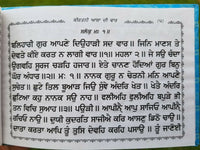 ਆਸਾ ਦੀ ਵਾਰ
ਸਲੋਕੁ ਮਃ ੧॥
ਬਲਿਹਾਰੀ ਗੁਰ ਆਪਣੇ ਦਿਉਹਾੜੀ ਸਦ ਵਾਰ॥ ਜਿਨਿ ਮਾਣਸ ਤੇ
ਦੇਵਤੇ ਕੀਏ ਕਰਤ ਨ ਲਾਗੀ ਵਾਰ॥੧॥ ਮਹਲਾ ੨॥ ਜੇ ਸਉ ਚੰਦਾ
ਉਗਵਹਿ ਸੂਰਜ ਚੜਹਿ ਹਜਾਰ॥ ਏਤੇ ਚਾਨਣ ਹੋਦਿਆਂ ਗੁਰ ਬਿਨੁ
ਘੋਰ ਅੰਧਾਰ॥੨॥ ਮਃ ੧॥ ਨਾਨਕ ਗੁਰੂ ਨ ਚੇਤਨੀ ਮਨਿ ਆਪਣੈ
ਸੁਚੇਤ॥ ਛੁਟੇ ਤਿਲ ਬੂਆੜ ਜਿਉ ਸੁੰਞੇ ਅੰਦਰਿ ਖੇਤ॥ ਖੇਤੈ ਅੰਦਰਿ
ਛੁਟਿਆ ਕਹੁ ਨਾਨਕ ਸਉ ਨਾਹ॥ ਫਲੀਅਹਿ ਫੁਲੀਅਹਿ ਬਪੁੜੇ ਭੀ
ਤਨ ਵਿਚਿ ਸੁਆਹ॥੩॥ ਪਉੜੀ॥ ਆਪੀਨੈ ਆਪੁ ਸਾਜਿਓ ਆਪੀਨੈ
ਰਚਿਓ ਨਾਉ॥ ਦੁਯੀ ਕੁਦਰਤਿ ਸਾਜੀਐ ਕਰਿ ਆਸਣੁ ਡਿਠੋ ਚਾਉ॥
ਦਾਤਾ ਕਰਤਾ ਆਪਿ ਤੂੰ ਤੁਸਿ ਦੇਵਹਿ ਕਰਹਿ ਪਸਾਉ॥ ਤੂੰ ਜਾਣੋਈ